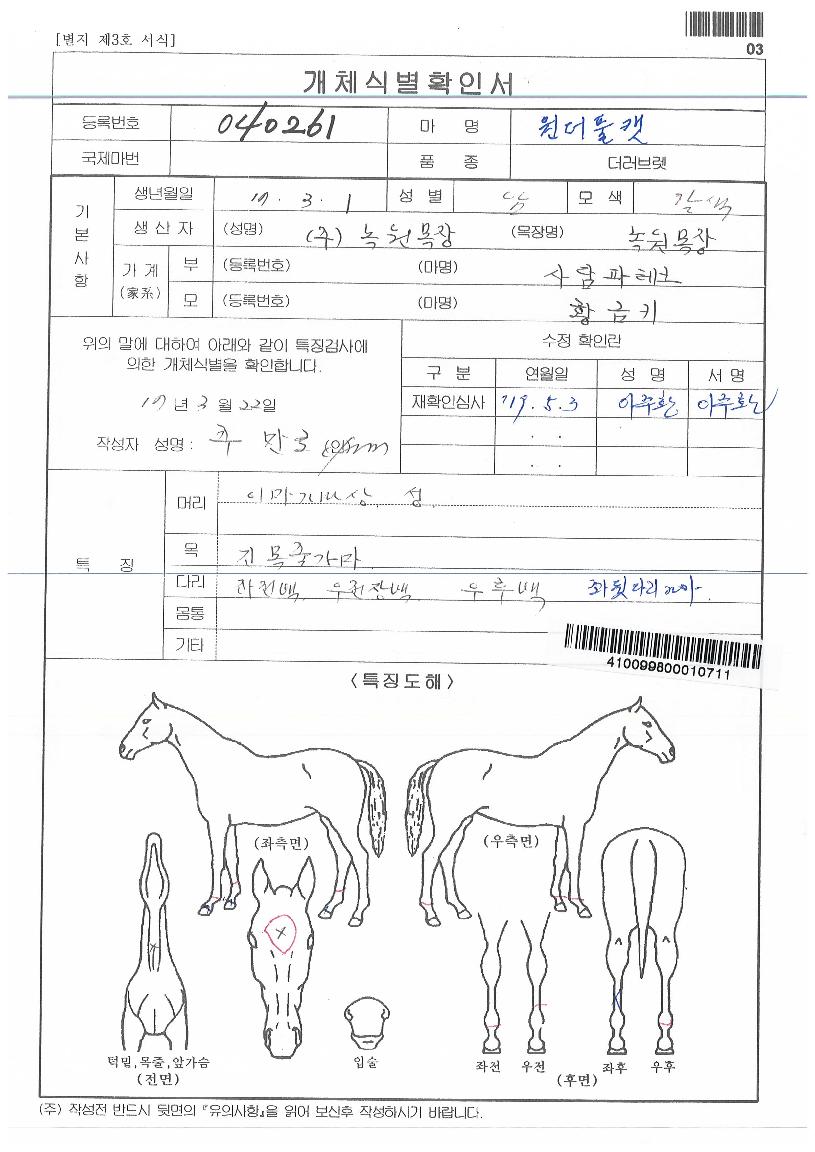 [별지 제3호 서식]
03
개체식별확인서
등록번호 040261 마 명 원더풀캣
국제마번 품 종 더러브렛
기본사항
생년월일 17. 3. 1 성 별 모 색 갈색
생 산 자 (성명) (주) 녹원목장 (목장명) 녹원목장
가 계 (家系) 부 (등록번호) (마명) 사담파테크
모 (등록번호) (마명) 황금키
위의 말에 대하여 아래와 같이 특징검사에
의한 개체식별을 확인합니다.
17년 3 월 22일
작성자 성명 :
수정 확인란
구 분 연월일 성 명 서 명
재확인심사 '19. 5. 3
. .
. .
특 징
머리
목 진 목줄가마
다리 좌전백, 우전장백, 우후백
몸통
기타
410099800010711
<특징도해>
(좌측면) (우측면)
턱밑,목줄,앞가슴
(전면)
입술
좌전 우전 좌후 우후
(후면)
(주) 작성전 반드시 뒷면의 『유의사항』을 읽어 보신후 작성하시기 바랍니다.